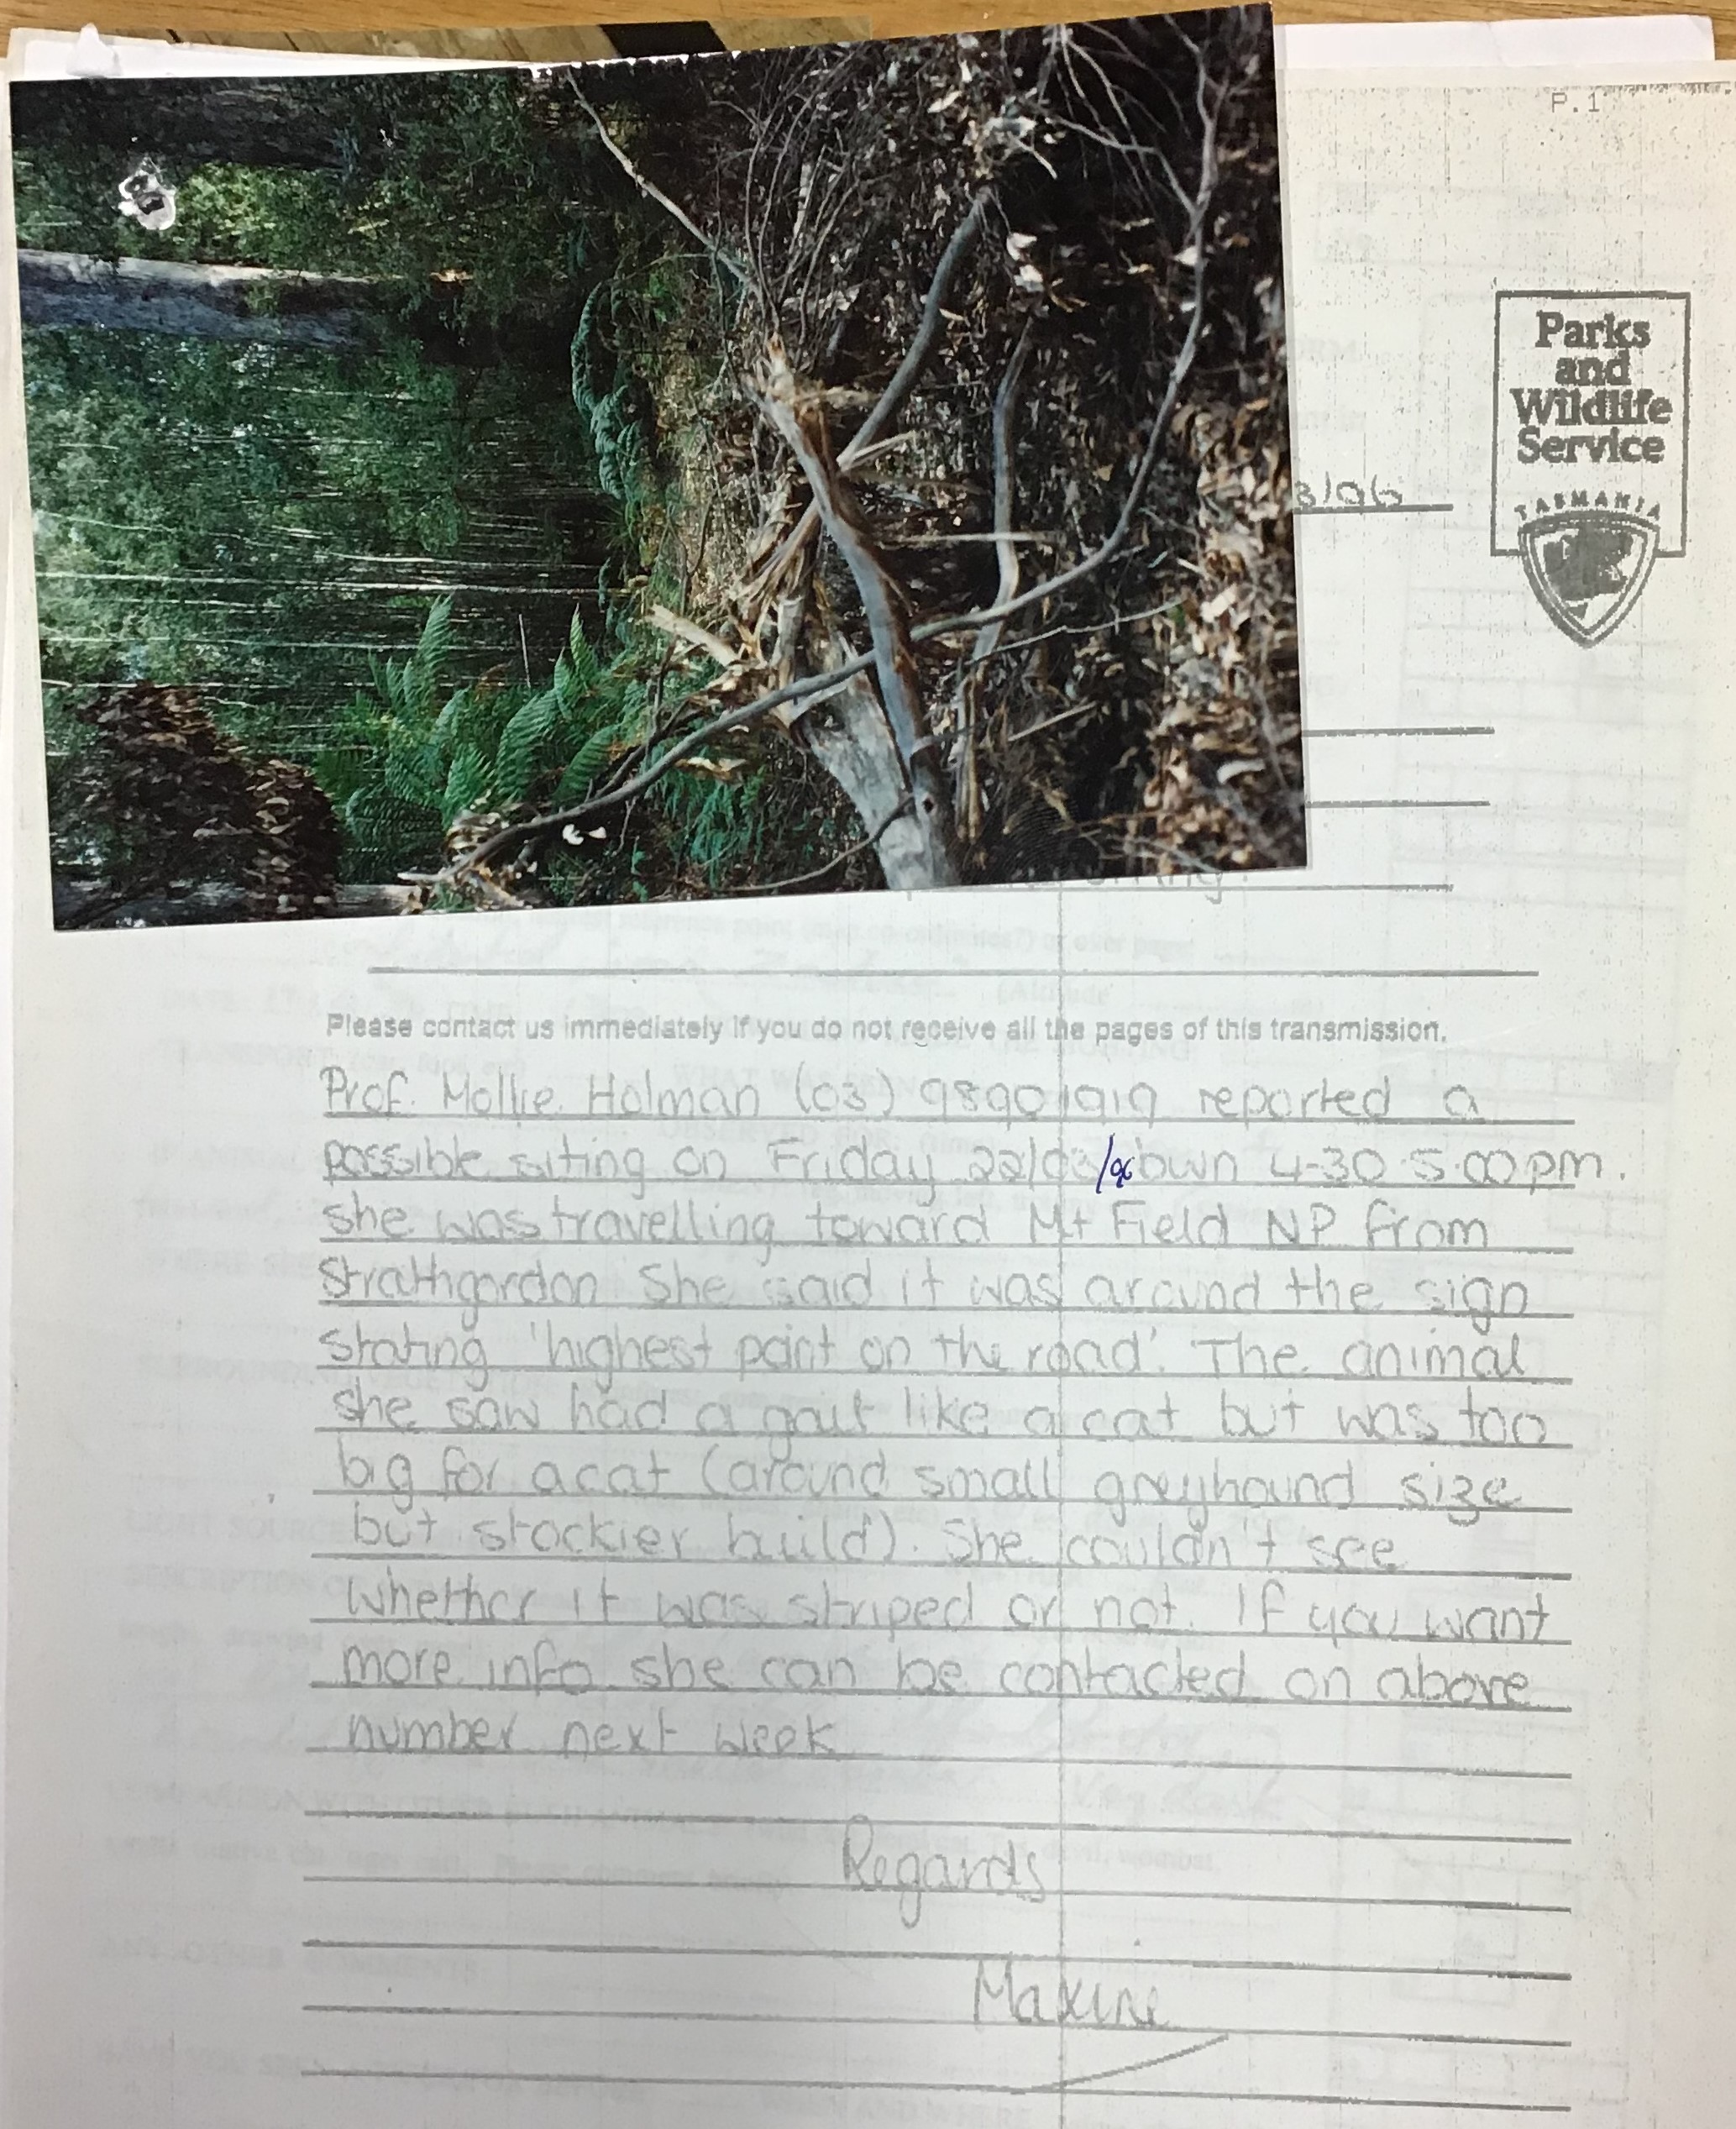 P.1
Parks
and
Wildlife
Service
TASMANIA
3/96
Please contact us immediately if you do not receive all the pages of this transmission.
Prof. Mollie Holman (03) 98901919 reported a
possible siting on Friday 22/03/96 4-30-5.00pm.
she was travelling toward Mt Field NP from
Strathgordon She said it was around the sign
stating 'highest point on the road'. The animal
she saw had a gait like a cat but was too
big for a cat (around small greyhound size
but stockier build). She couldn't see
whether it was striped or not. If you want
more info she can be contacted on above
number next week
Regards
Maxine